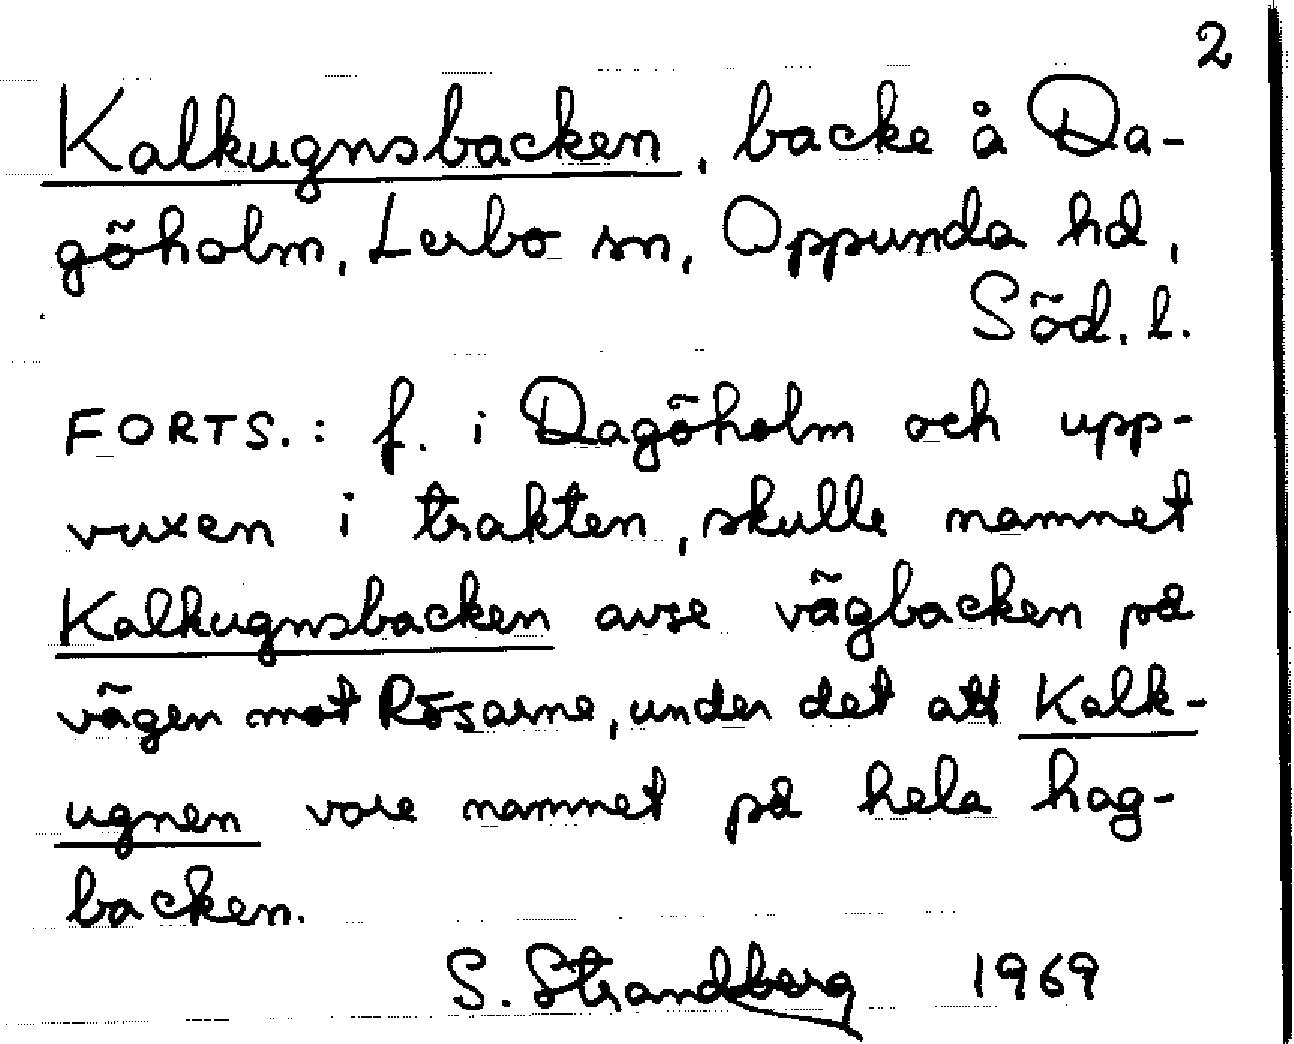 2
Kalkugnsbacken, backe å Da-
göholm, Lerbo sn, Oppunda hd,
Söd. l.
FORTS.: f. i Dagöholm och upp-
vuxen i trakten, skulle namnet
Kalkugnsbacken avse vägbacken på
vägen mot Rösarne, under det att Kalk-
ugnen vore namnet på hela hag-
backen.
S. Strandberg 1969